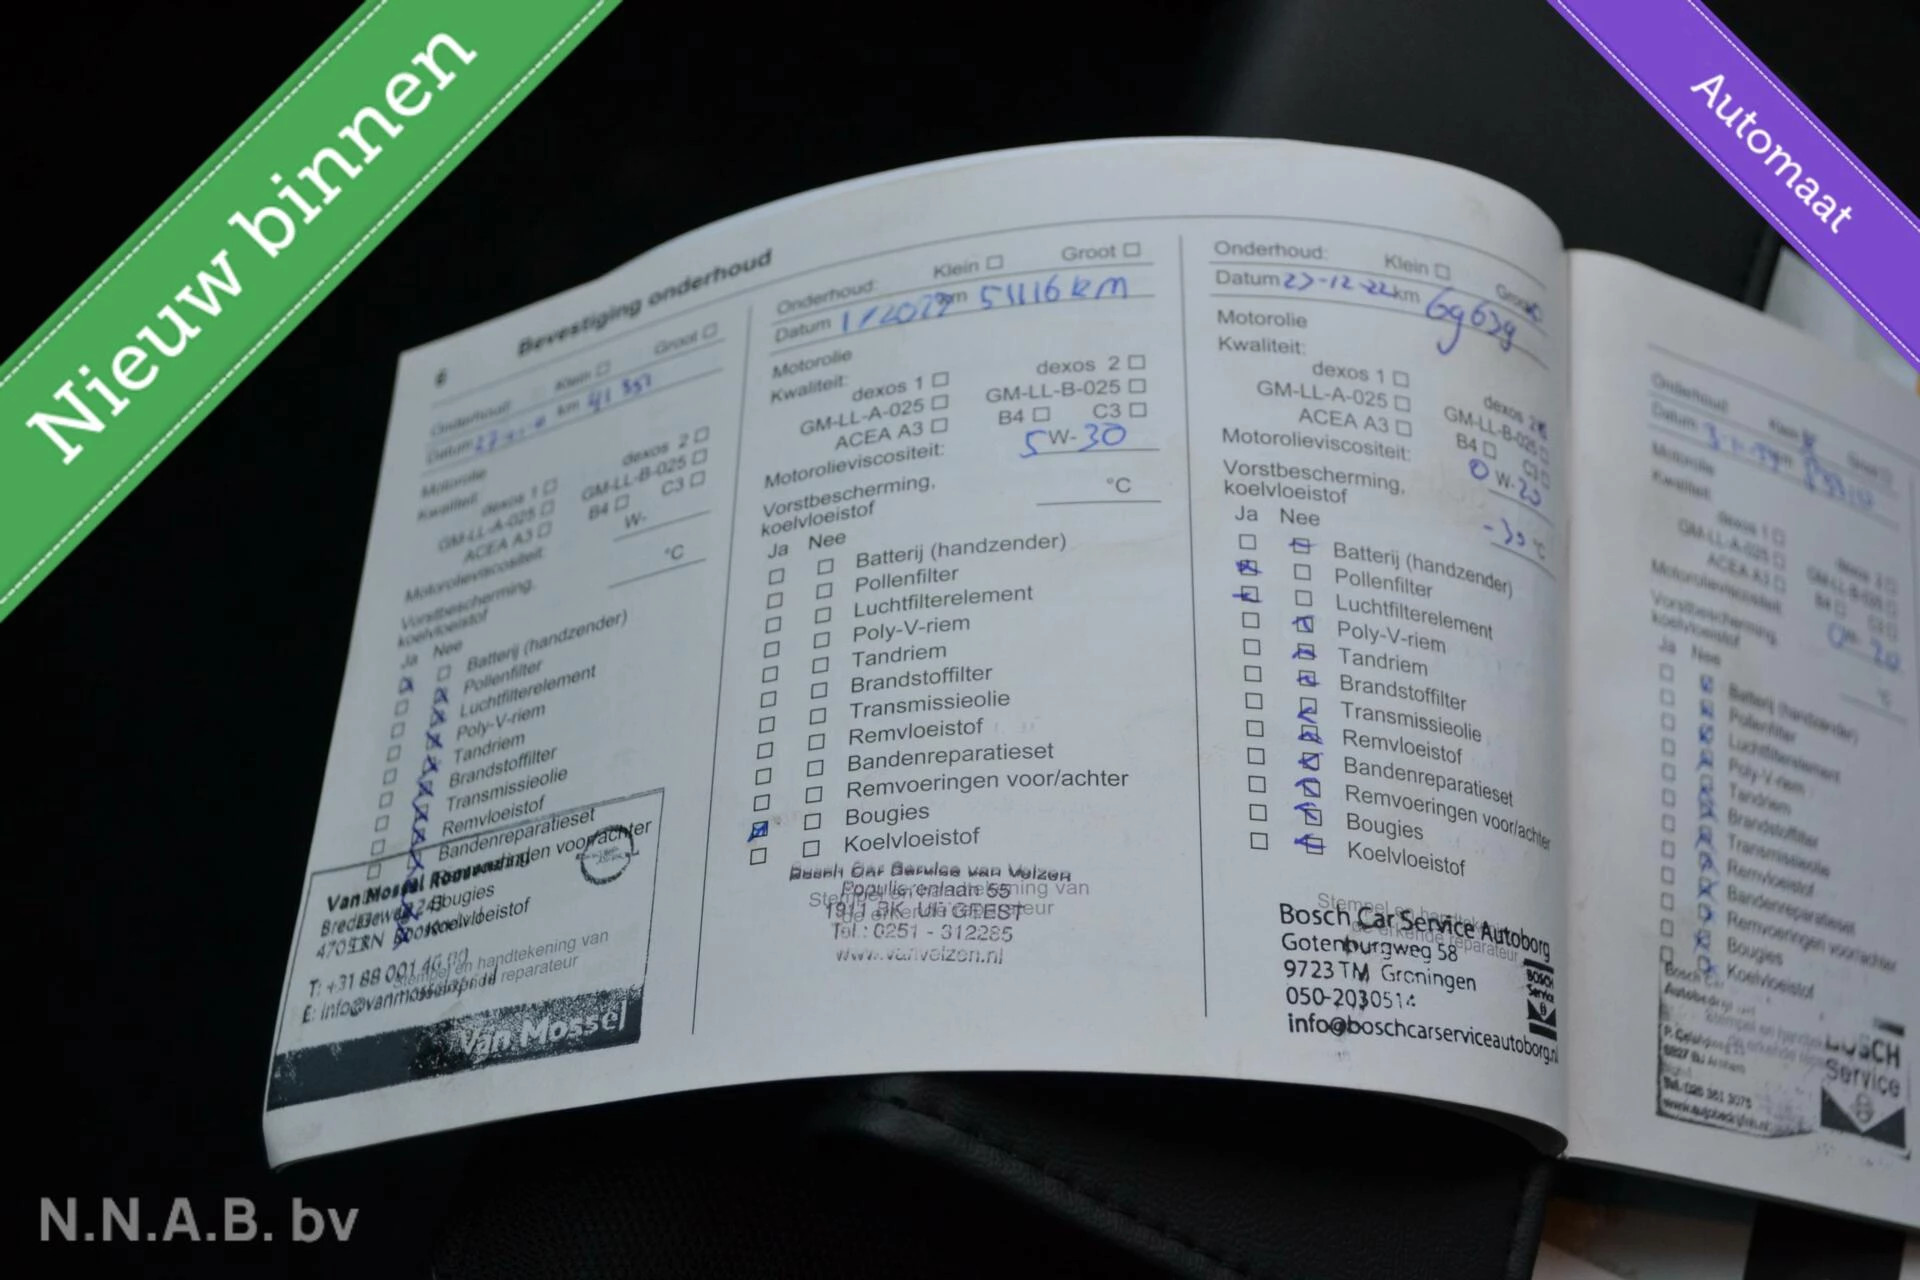 Nieuw binnen
Automaat
6 Bevestiging onderhoud
Onderhoud: Klein Groot
Datum km 41 357
Motorolie
Kwaliteit:
dexos 1 dexos 2
GM-LL-A-025 GM-LL-B-025
ACEA A3 B4 C3
Motorolieviscositeit: W-
Vorstbescherming,
koelvloeistof °C
Ja Nee
Batterij (handzender)
Pollenfilter
Luchtfilterelement
Poly-V-riem
Tandriem
Brandstoffilter
Transmissieolie
Remvloeistof
Bandenreparatieset
Bougies
Koelvloeistof
Stempel en handtekening van
Van Mossel
T: +31 88 001
Van Mossel
Onderhoud: Klein Groot
Datum km 51116 km
Motorolie
Kwaliteit:
dexos 1 dexos 2
GM-LL-A-025 GM-LL-B-025
ACEA A3 B4 C3
Motorolieviscositeit: 5 W- 30
Vorstbescherming,
koelvloeistof °C
Ja Nee
Batterij (handzender)
Pollenfilter
Luchtfilterelement
Poly-V-riem
Tandriem
Brandstoffilter
Transmissieolie
Remvloeistof
Bandenreparatieset
Remvoeringen voor/achter
Bougies
Koelvloeistof
Bosch Car Service van Velzen
Populierenlaan 55
1911 BK UITGEEST
Tel.: 0251 - 312285
www.vanvelzen.nl
Onderhoud: Klein Groot
Datum 27-12-22 km 69639
Motorolie
Kwaliteit:
dexos 1 dexos 2
GM-LL-A-025 GM-LL-B-025
ACEA A3 B4 C3
Motorolieviscositeit: 0 W- 20
Vorstbescherming,
koelvloeistof -30 °C
Ja Nee
Batterij (handzender)
Pollenfilter
Luchtfilterelement
Poly-V-riem
Tandriem
Brandstoffilter
Transmissieolie
Remvloeistof
Bandenreparatieset
Remvoeringen voor/achter
Bougies
Koelvloeistof
Bosch Car Service Autoborg
Gotenburgweg 58
9723 TM Groningen
050-2030514
info@boschcarserviceautoborg.nl
BOSCH
Service
Onderhoud: Klein Groot
Datum
Motorolie
Kwaliteit:
dexos 1
GM-LL-A-025
ACEA A3
Motorolieviscositeit: 0 W- 20
Vorstbescherming,
koelvloeistof °C
Ja Nee
Batterij (handzender)
Pollenfilter
Luchtfilterelement
Poly-V-riem
Tandriem
Brandstoffilter
Transmissieolie
Remvloeistof
Bandenreparatieset
Remvoeringen voor/achter
Bougies
Koelvloeistof
BOSCH
Service
N.N.A.B. bv